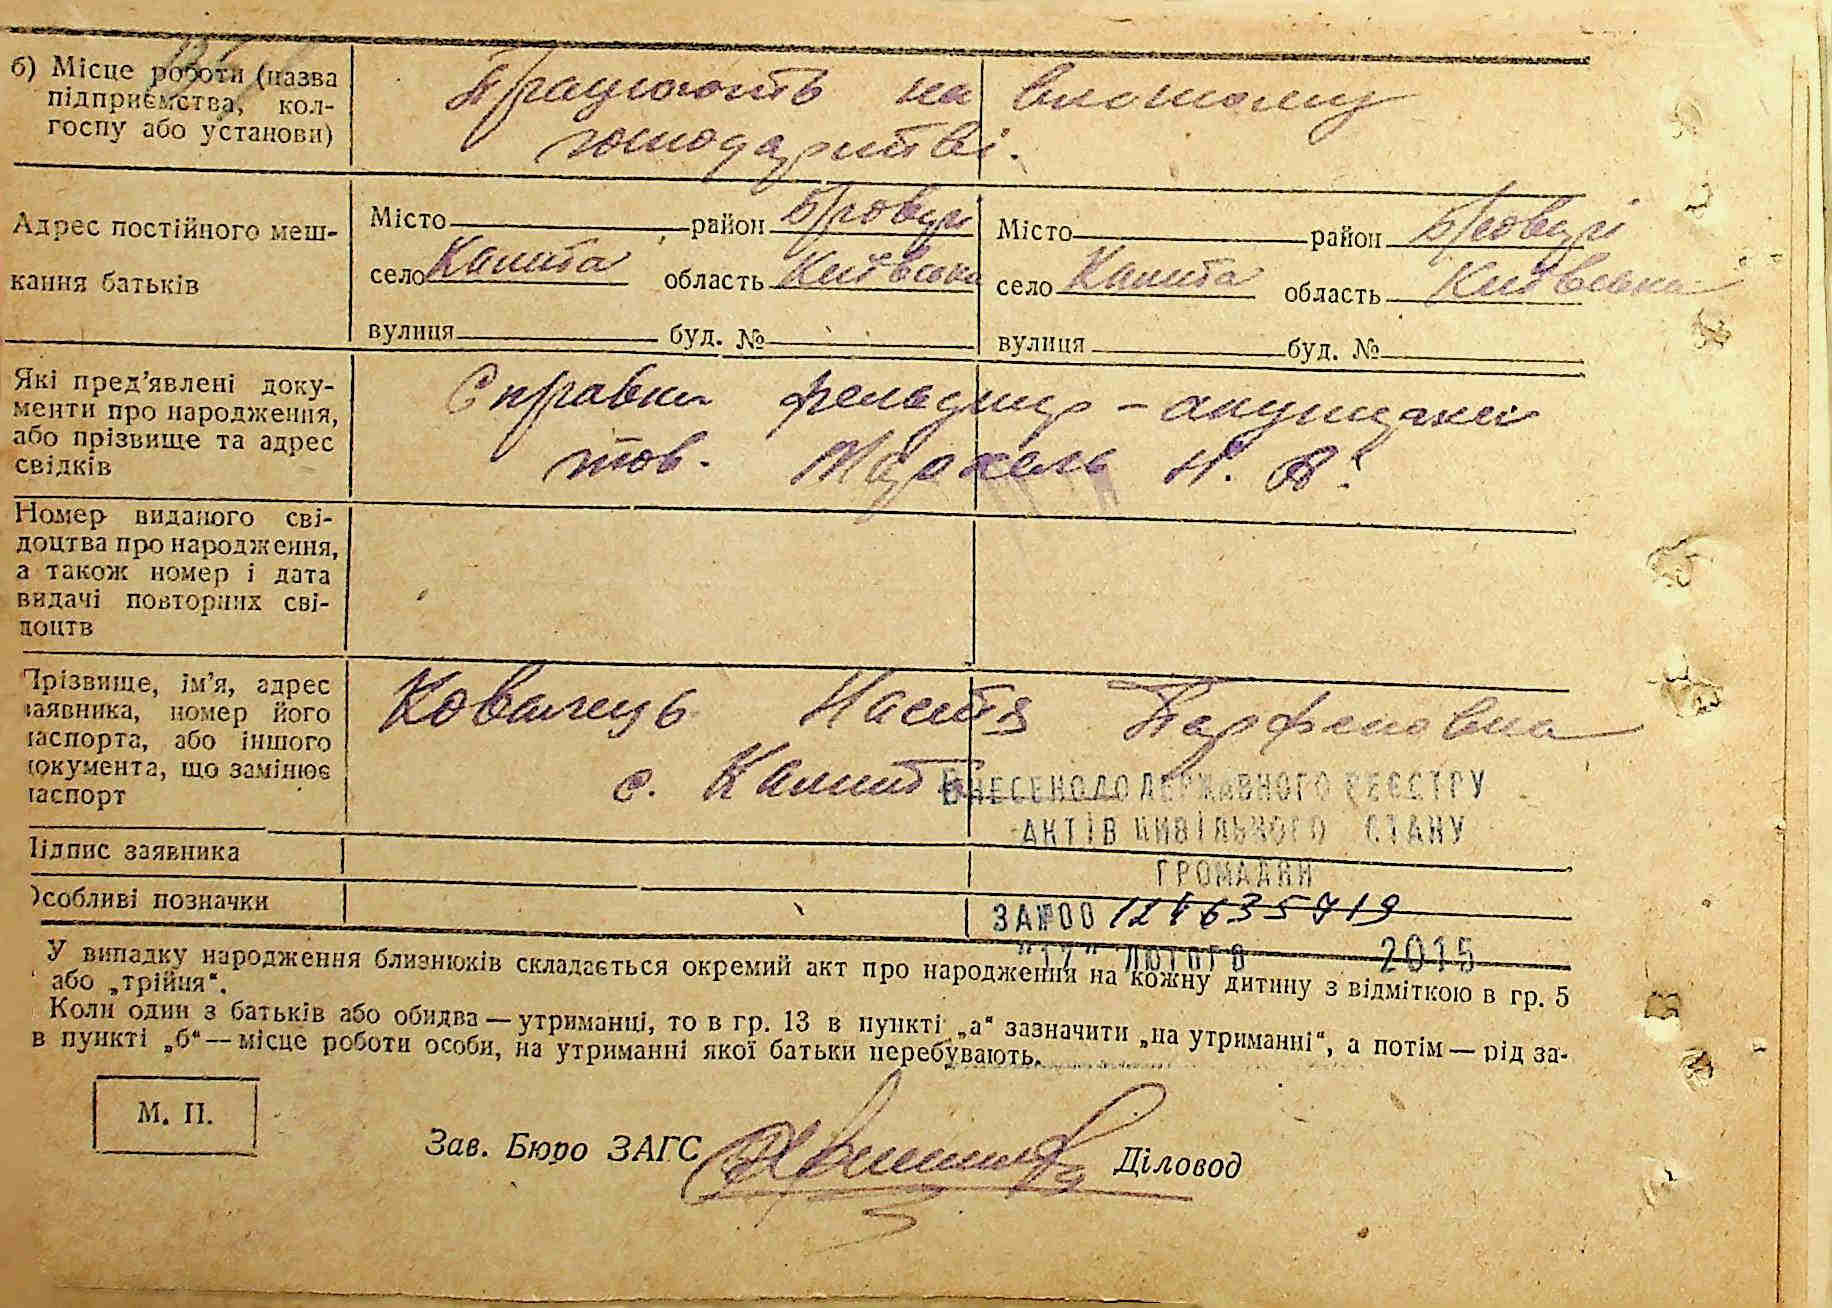 б) Місце роботи (назва
підприємства, кол-
госпу або установи)
Працюють на власному
господарстві.
Адрес постійного меш-
кання батьків
Місто район Бровари Місто район Броварі
село Калита область Київська село Калита область Київська
вулиця буд. № вулиця буд. №
Які пред'явлені доку-
менти про народження,
або прізвище та адрес
свідків
Справка фельдшер-акушерки
тов. Н. В.
Номер виданого сві-
доцтва про народження,
а також номер і дата
видачі повторних сві-
доцтв
Прізвище, ім'я, адрес
заявника, номер його
паспорта, або іншого
документа, що замінює
паспорт
Ковалець Настя Парфеновна
с. Калита
ВНЕСЕНО ДО ДЕРЖАВНОГО РЕЄСТРУ
АКТІВ ЦИВІЛЬНОГО СТАНУ
ГРОМАДЯН
Підпис заявника
Особливі позначки
ЗА №00
"17" ЛЮТОГО 2015
У випадку народження близнюків складається окремий акт про народження на кожну дитину з відміткою в гр. 5
або „трійня“.
Коли один з батьків або обидва — утриманці, то в гр. 13 в пункті „а“ зазначити „на утриманні“, а потім — рід за-
в пункті „б“ — місце роботи особи, на утриманні якої батьки перебувають.
М. П.
Зав. Бюро ЗАГС Діловод